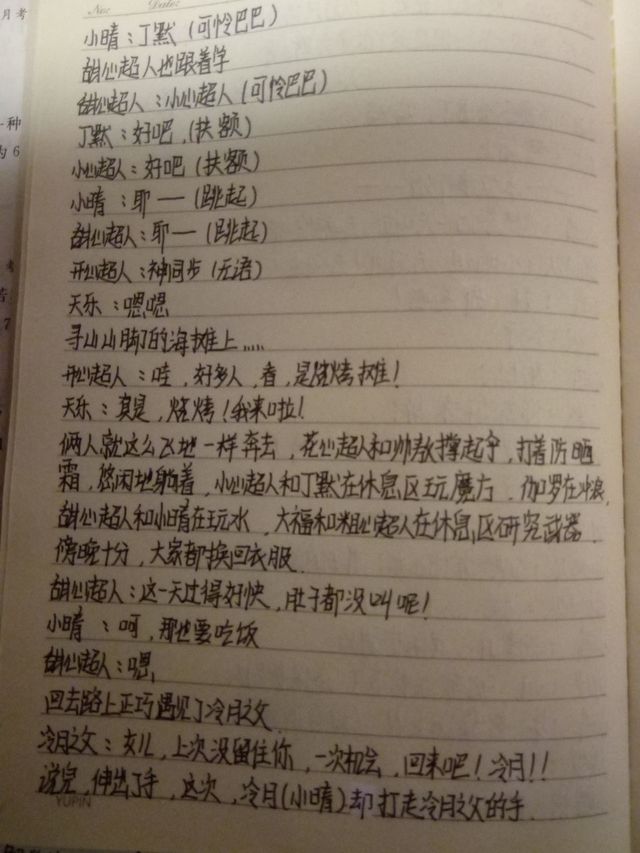 月考
No:
Date:
小晴：丁默（可怜巴巴）
甜心超人也跟着学
甜心超人：小心超人（可怜巴巴）
丁默：好吧，（扶额）
小心超人：好吧（扶额）
小晴：耶一（跳起）
甜心超人：耶一（跳起）
开心超人：神同步（无语）
天乐：嗯嗯
寻山山脚的海摊上.....
开心超人：哇，好多人，看，是烧烤摊！
天乐：真是，烧烤！我来啦！
俩人就这么飞地一样奔去，花心超人和帅敖撑起伞，打着防晒
霜，悠闲地躺着，小心超人和丁默在休息区玩魔方，伽罗在冲浪，
甜心超人和小晴在玩水，大福和粗心超人在休息区研究武器．
傍晚十分，大家都换回衣服
甜心超人：这一天过得好快，肚子都没叫呢！
小晴：呵，那也要吃饭
甜心超人：嗯，
回去路上正巧遇见了冷月之父
冷月之父：女儿，上次没留住你，一次机会，回来吧！冷月！！
说完，伸出了手，这次，冷月（小晴）却打走冷月之父的手．
YUPIN